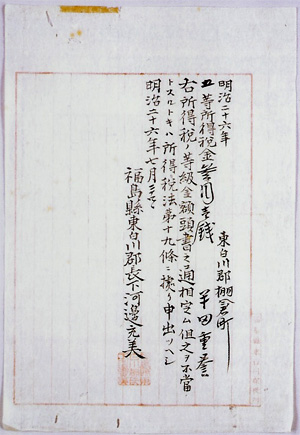 明治二十六年
五等所得税金 円 銭
東白川郡棚倉町
半田重
右所得税ノ等級金額頭書之通相定ム但之ヲ不當
トスルトキハ所得税法第十九條ニ據リ申出ツヘシ
明治二十六年七月
福島縣東白川郡長下河邊充美